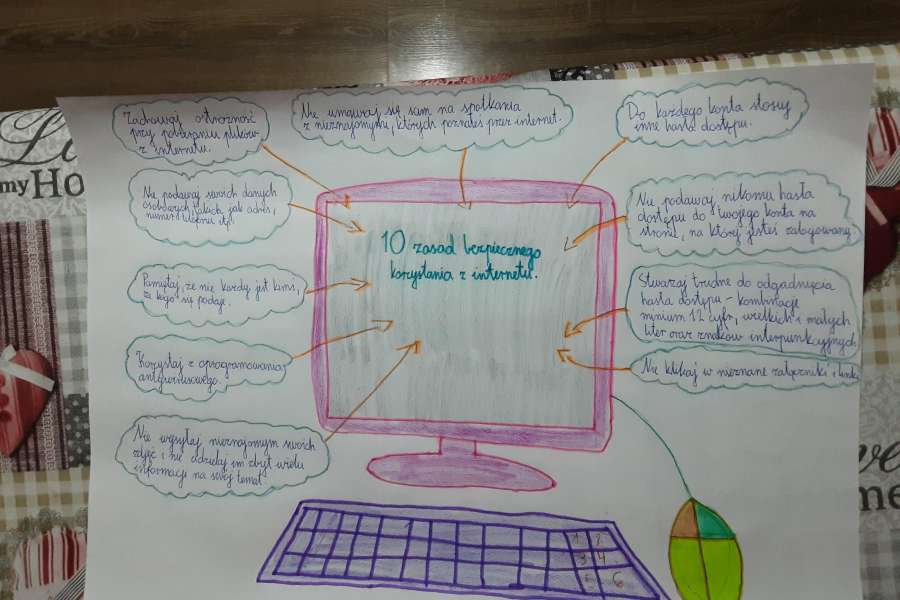 Zachowaj ostrożność
przy pobieraniu plików
z internetu.
Nie umawiaj się sam na spotkania
z nieznajomymi, których poznałeś przez internet.
Do każdego konta stosuj
inne hasła dostępu.
Nie podawaj swoich danych
osobowych takich jak adres,
numer telefonu itp.
Nie podawaj nikomu hasła
dostępu do twojego konta na
stronie, na której jesteś zalogowany.
10 zasad bezpiecznego
korzystania z internetu.
Pamiętaj, że nie każdy jest kimś,
za kogo się podaje.
Stwarzaj trudne do odgadnięcia
hasła dostępu - kombinacje
minium 12 cyfr, wielkich i małych
liter oraz znaków interpunkcyjnych.
Korzystaj z oprogramowania
antywirusowego.
Nie klikaj w nieznane załączniki i linki
Nie wysyłaj nieznajomym swoich
zdjęć i nie udzielaj im zbyt wielu
informacji na swój temat
1 2
3 4
5 6
my Ho
me